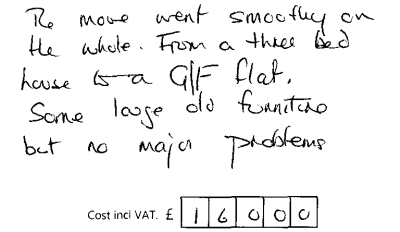 The move went smoothly on
the whole. From a three bed
house to a G/F flat.
Some large old furniture
but no major problems
Cost incl VAT. £ 16000